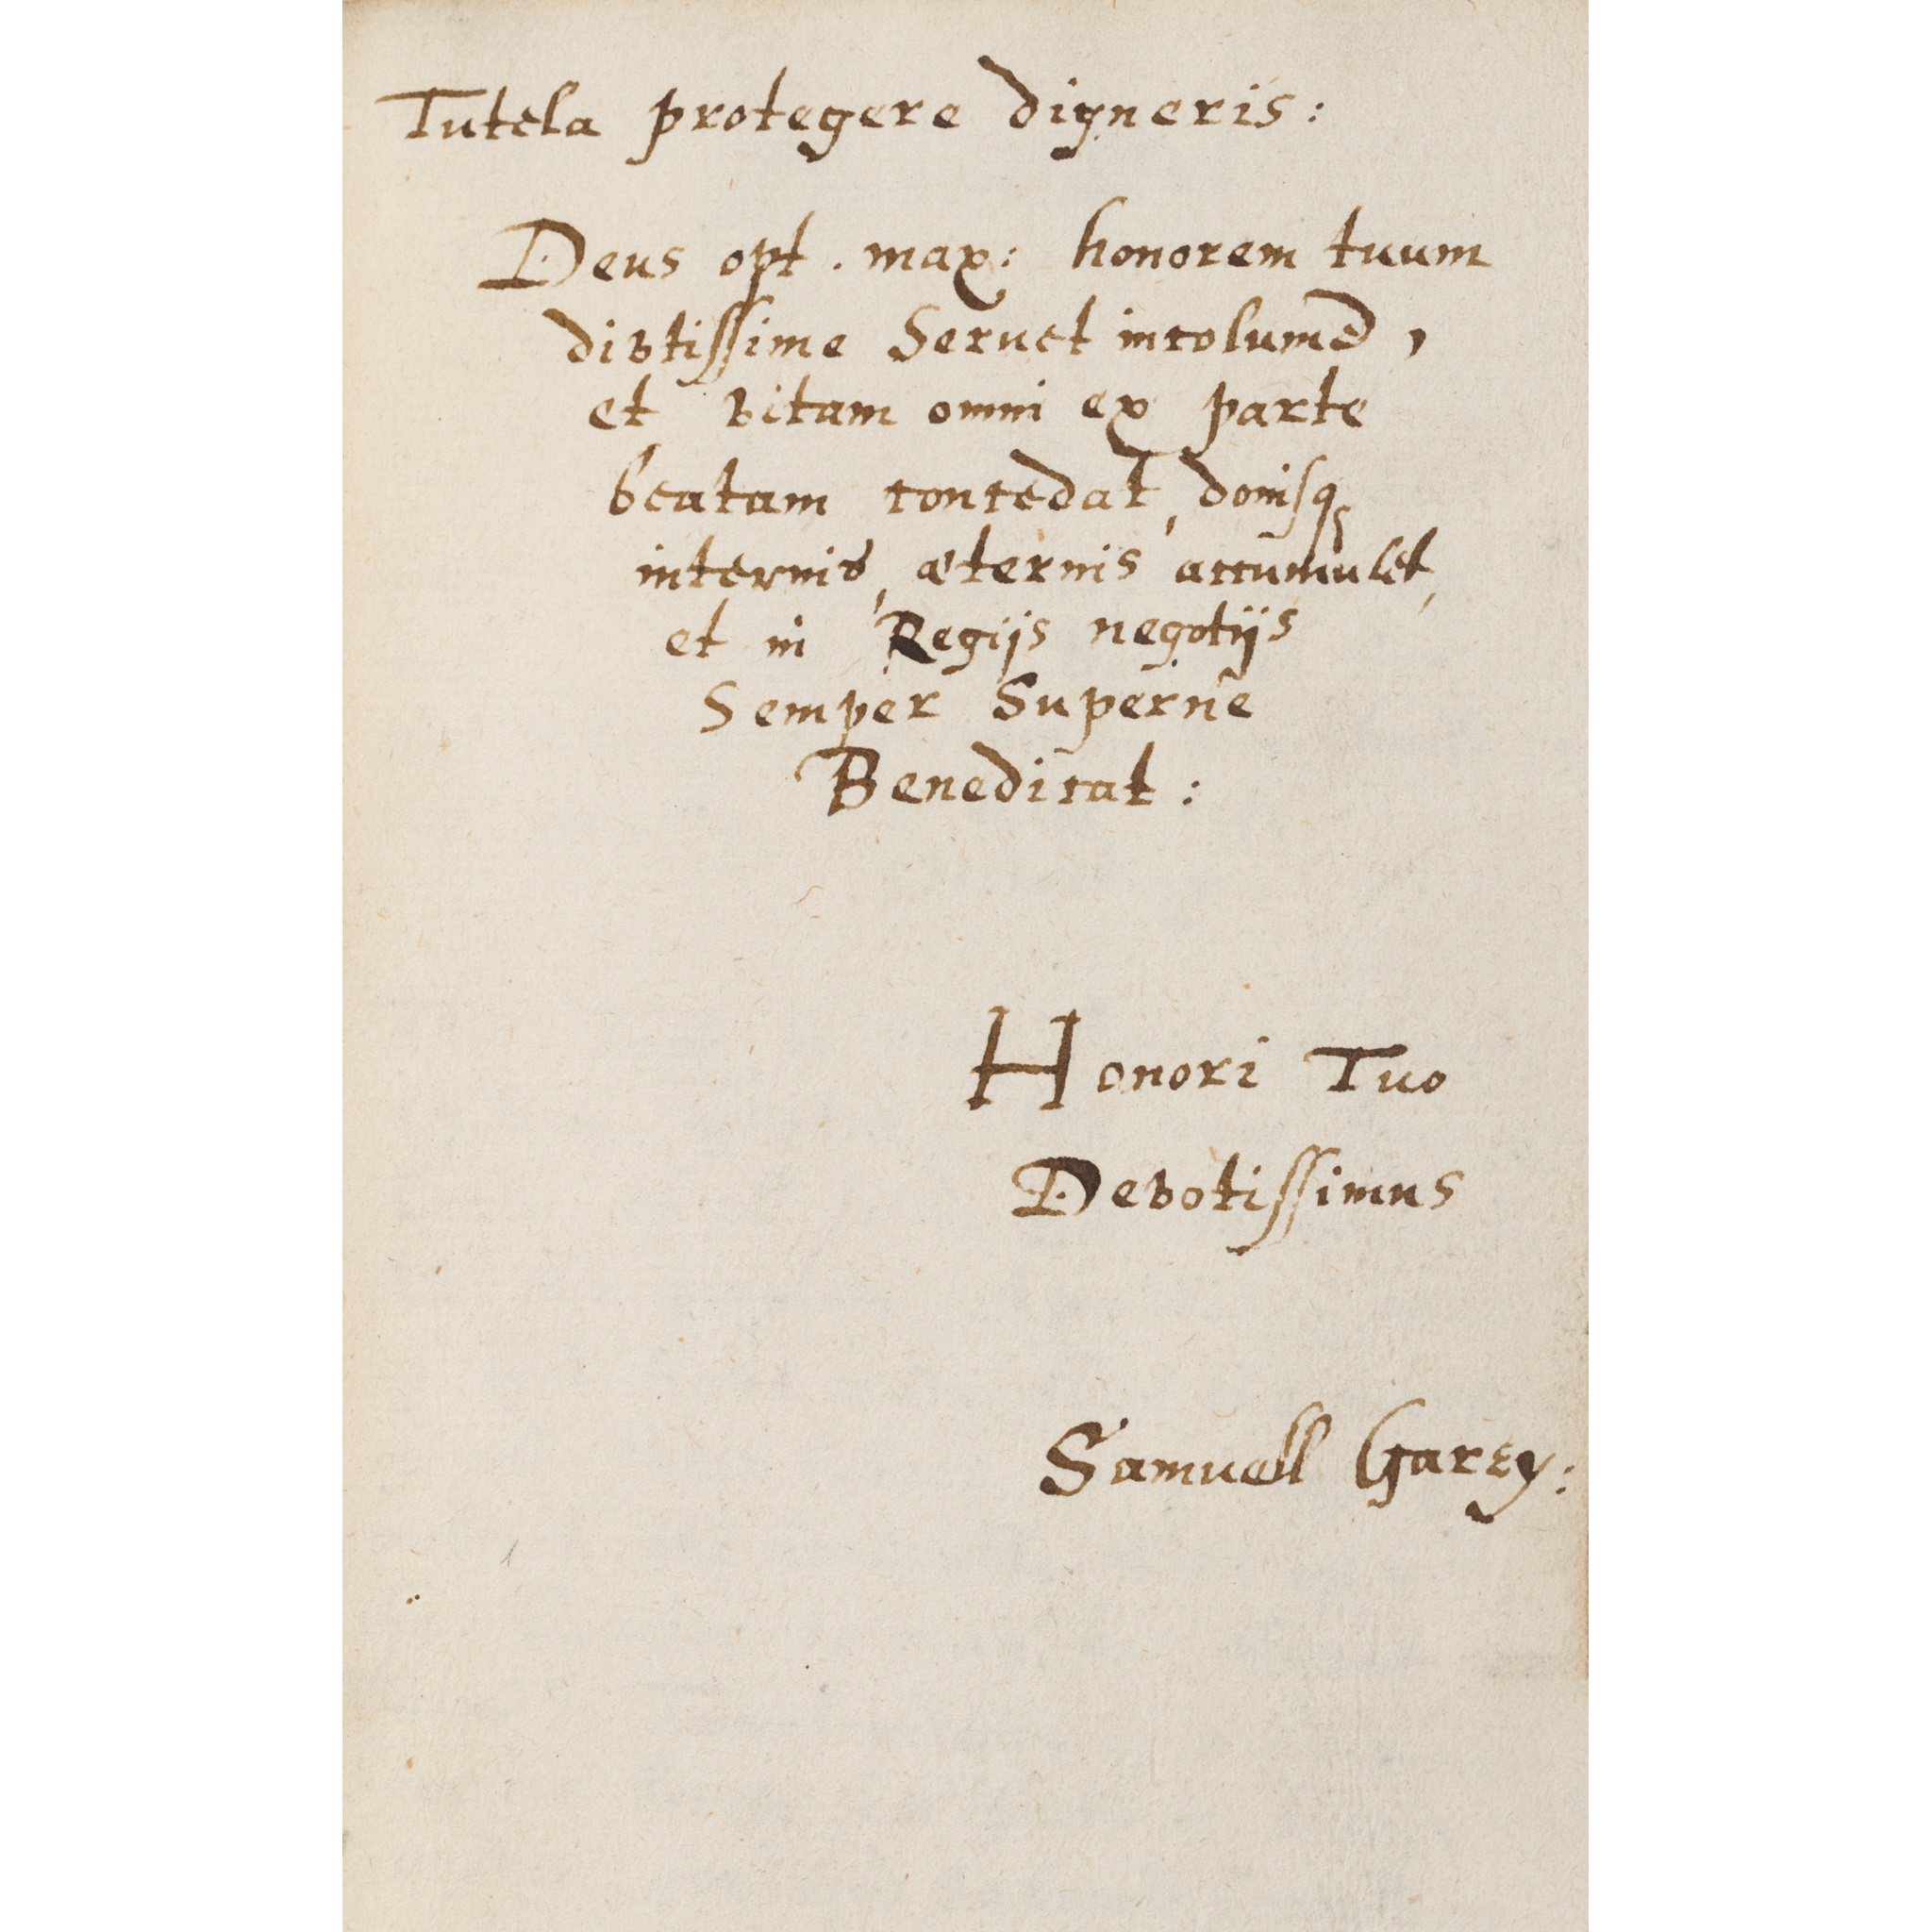 Tutela protegere digneris:
Deus opt. max: honorem tuum
diutissime Seruet incolumē,
et vitam omni ex parte
beatam concedat, donisq,
internis, æternis accumulet,
et in Regijs negotijs
Semper Supernè
Benedicat:
Honori Tuo
Devotissimus
Samuell Garey: